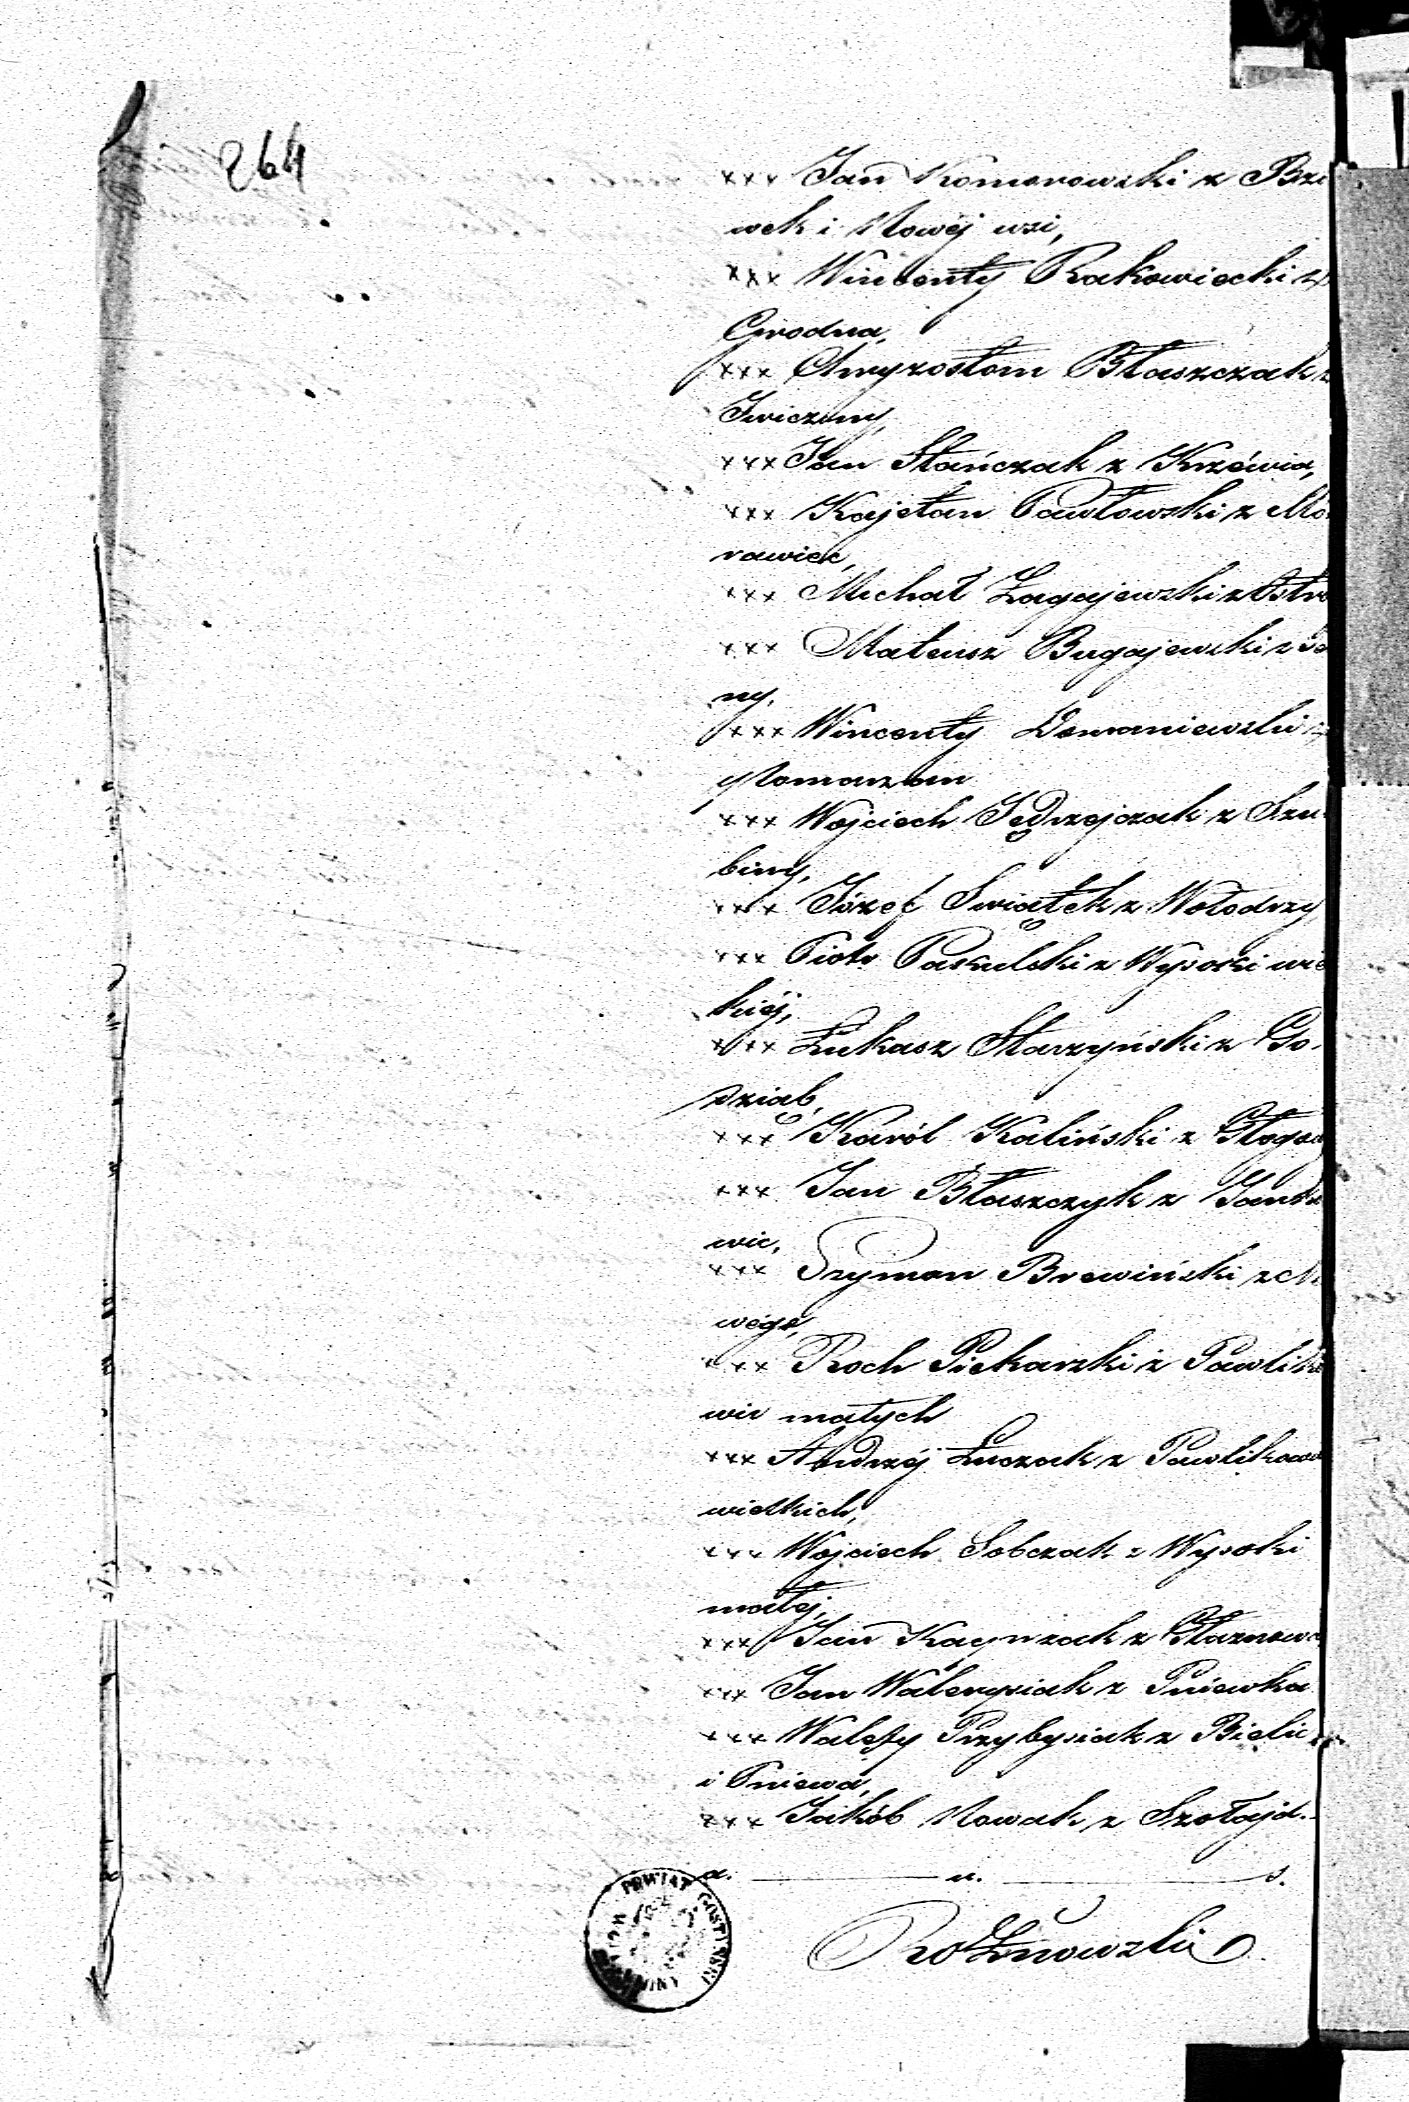 264
xxx Jan Komorowski z Brze
wek i Nowéj wsi,
xxx Wincenty Rakowiecki z
Grodna,
xxx Chryzostom Błaszczak z
Zwiczeny,
xxx Jan Stańczak z Krzéwia,
xxx Kajetan Pawłowski z Mo
rawiec,
xxx Michał Zagajewski z Ostro
xxx Mateusz Bugajewski z
ny,
xxx Wincenty Domaniewski z
xxx Wojciech Jędrzejczak z Szu
biny,
xxx Józef Swiątek z Wołodrzy
xxx Piotr Paskulski z Wysoki wie
kiéj,
xxx Łukasz Starzyński z Go-
dziąb,
xxx Karól Kaliński z
xxx Jan Błaszczyk z Janko
wic,
xxx Szymon Brewiński z
wégo,
xxx Roch Piekarski z Pawliko
wic małych
xxx Andrzéj Łuczak z Pawlikowic
wielkich,
xxx Wojciech Sobczak z Wysoki
małéj,
xxx Jan Kacprzak z Głaznowa
xxx Jan Walerysiak z Pniewka
xxx Walęty Przybysiak z Bielic
i Pniewa,
xxx Jakób Nowak z Szołajd.
a. u. s.
POWIAT GOSTYNSKI
Rożnowski